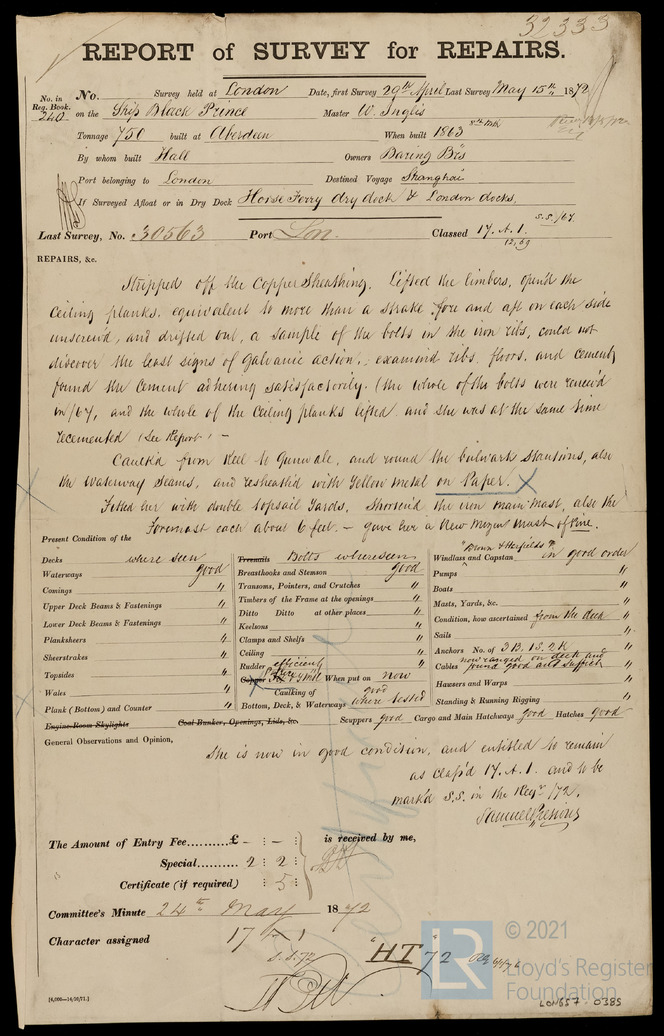 32333
REPORT of SURVEY for REPAIRS.
No. in Reg. Book. 240
No. Survey held at London Date, first Survey 29th April Last Survey May 15th 1872
on the Ship Black Prince Master W. Inglis
Tonnage 750 built at Aberdeen When built 1863 8th Mo
By whom built Hall Owners Baring Bros
Port belonging to London Destined Voyage Shanghai
If Surveyed Afloat or in Dry Dock Horse Ferry dry dock & London docks,
Last Survey, No. 30563 Port Lon. Classed 17. A. 1. S.S./67.
12,69
REPAIRS, &c.
Stripped off the Copper Sheathing. Lifted the limbers, open'd the
Ceiling planks. equivalent to more than a strake fore and aft on each side
unscrew'd, and drifted out, a sample of the bolts in the iron ribs, could not
discover the least signs of Galvanic action, examined ribs. floors. and cement,
found the cement adhering satisfactorily. (the whole of the bolts were renew'd
in/67, and the whole of the Ceiling planks lifted and she was at the same time
recemented (See Report) –
Caulk'd from Keel to Gunwale, and round the bulwark stantions, also
the Waterway Seams, and resheath'd with Yellow metal on Paper. X
Fitted her with double topsail yards. Shorten'd the iron main mast, also the
Foremast each about 6 feet. – gave her a New Mizen Mast of Pine.
Present Condition of the
Decks where seen
Waterways good
Comings "
Upper Deck Beams & Fastenings "
Lower Deck Beams & Fastenings "
Planksheers "
Sheerstrakes "
Topsides "
Wales "
Plank (Bottom) and Counter "
Engine Room Skylights Coal Bunker, Openings, Lids, &c.
Treenails Bolts where seen
Breasthooks and Stemson good
Transoms, Pointers, and Crutches "
Timbers of the Frame at the openings "
Ditto Ditto at other places "
Keelsons "
Clamps and Shelfs "
Ceiling "
Rudder efficient "
Copper When put on now
Caulking of good
Bottom, Deck, & Waterways where tested
Brown & Harfields P.
Windlass and Capstan in good order
Pumps "
Boats "
Masts, Yards, &c. "
Condition, how ascertained from the deck
Sails "
Anchors No. of 3B. 1S. 2K
Cables now ranged on deck and found good and suffict
Hawsers and Warps "
Standing & Running Rigging "
Scuppers good Cargo and Main Hatchways good Hatches good
General Observations and Opinion,
She is now in good condition, and entitled to remain
as class'd 17. A. 1. and to be
mark'd S.S. in the Regr /72.
Samuel Pretious
The Amount of Entry Fee..........£ - : - is received by me,
Special.......... 2 : 2
Certificate (if required) : 5
Committee's Minute 24th May 1872
Character assigned 17 A 1
S.S. 72
"HT" 72
[6,000—14/10/71.]
LR © 2021
Lloyd's Register
Foundation
LON657-0385